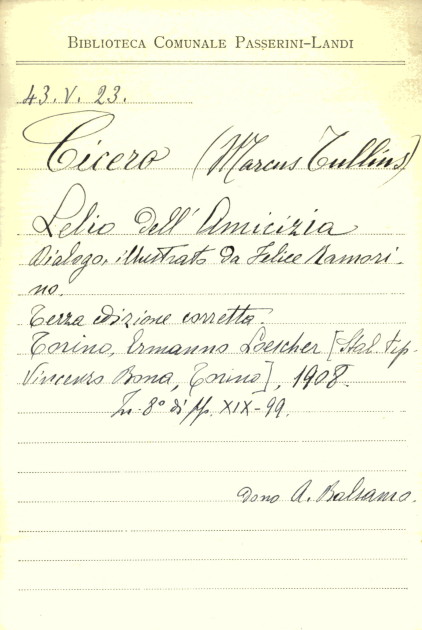 BIBLIOTECA COMUNALE PASSERINI-LANDI
43. V. 23.
Cicero (Marcus Tullius)
Lelio dell'Amicizia
Dialogo, illustrato da Felice Ramori-
no.
Terza edizione corretta.
Torino, Ermanno Loescher [Stab. tip.
Vincenzo Bona, Torino], 1908.
In-8° di pp. XIX-99.
dono A. Balsamo.